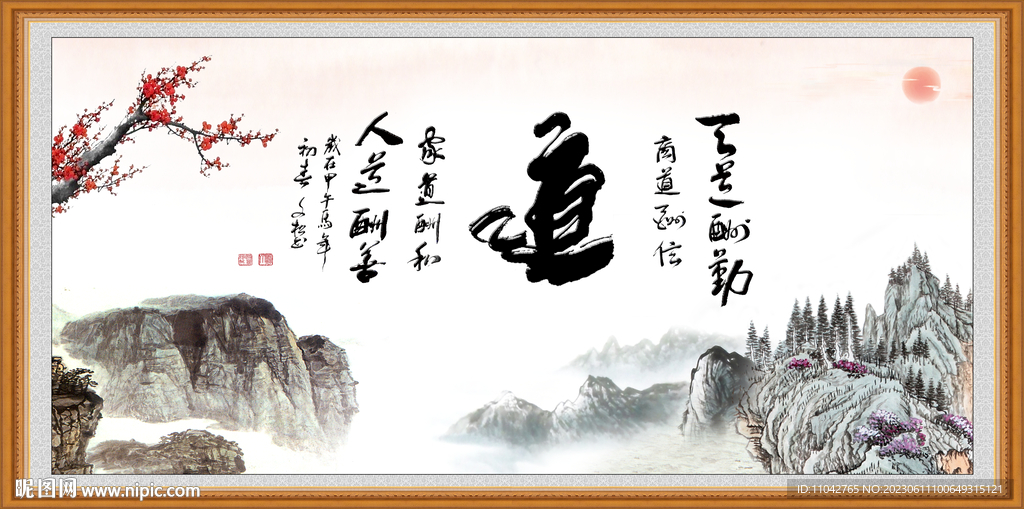 天道酬勤
商道酬信
道
家道酬和
人道酬善
岁在甲午马年
初春
昵图网 www.nipic.com
ID:11042765 NO:20230611100649315121